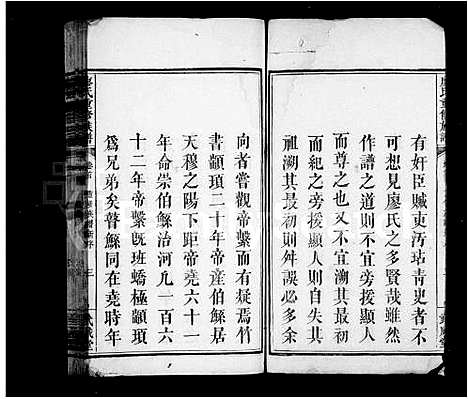 有奸臣贓吏汚玷青史者不
可想見廖氏之多賢哉雖然
作譜之道則不宜旁援顯人
而尊之也又不宜溯其最初
而紀之旁援顯人則自失其
祖溯其最初則舛誤必多余
向者嘗觀帝繫而有疑焉竹
書顓頊二十年帝產伯鯀居
天穆之陽下距帝堯六十一
年命崇伯鯀治河凡一百六
十二年帝繫旣班蟜極顓頊
爲兄弟矣瞽鯀同在堯時年
廖氏重修族譜
卷首
三
武威堂